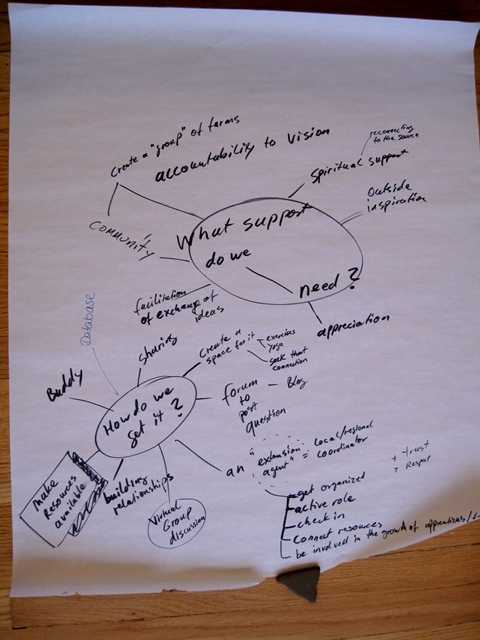 create a "group" of farms
accountability to vision
reconnecting
to the source
spiritual support
outside
inspiration
COMMUNITY
What support
do we
need?
facilitation
of exchange of
ideas
appreciation
Database
sharing
create a
space for it
exercise
yoga
seek that
connection
Buddy
How do we
get it?
forum
to
post
question
Blog
make
Resources
available
building
relationships
Virtual
Group
discussion
an "extension
agent" = local/regional
coordinator
+ trust
+ Respect
get organized
active role
check in
connect resources
be involved in the growth of